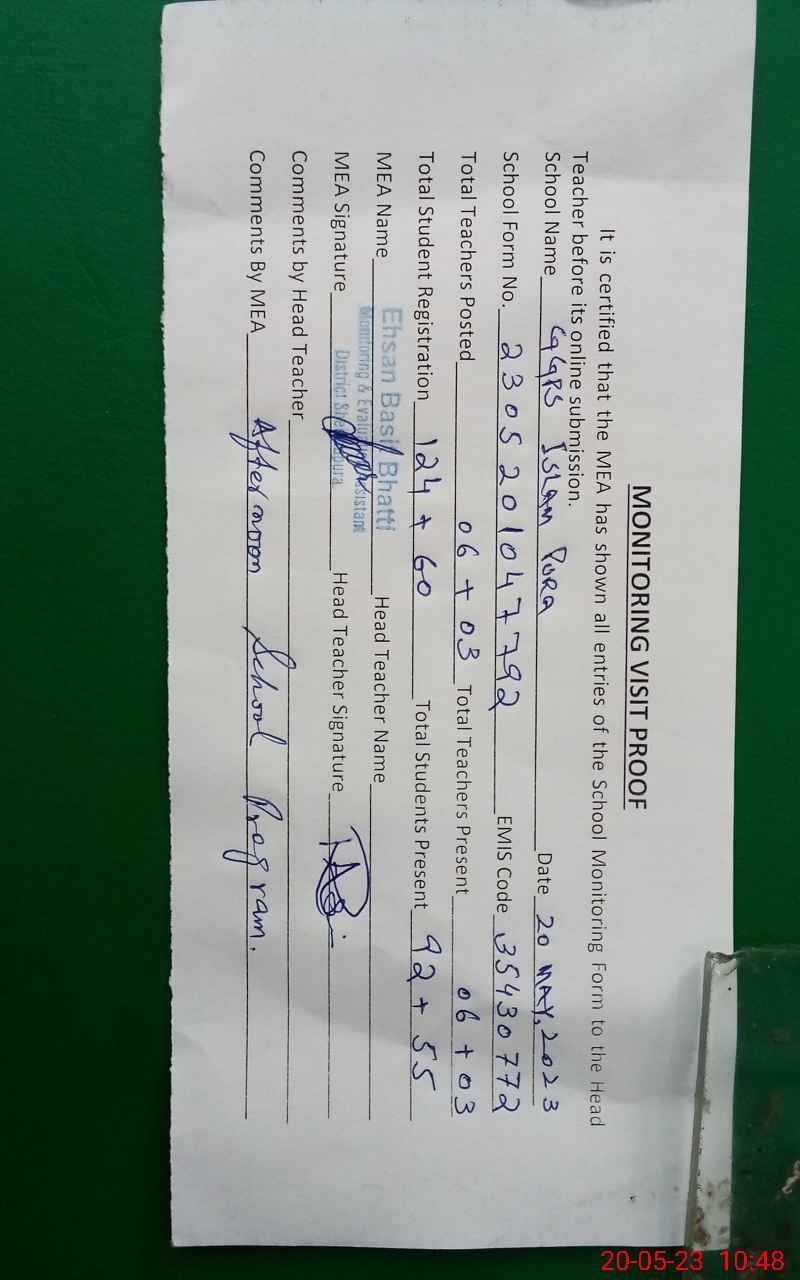 MONITORING VISIT PROOF
It is certified that the MEA has shown all entries of the School Monitoring Form to the Head
Teacher before its online submission.
School Name GGPS ISLAM PURA Date 20 MAY, 2023
School Form No. 2305201047792 EMIS Code 35430772
Total Teachers Posted 06 + 03 Total Teachers Present 06 + 03
Total Student Registration 124 + 60 Total Students Present 92 + 55
MEA Name Ehsan Basil Bhatti Head Teacher Name
Monitoring & Evaluation Assistant
District Sheikhupura
MEA Signature Head Teacher Signature
Comments by Head Teacher
Comments By MEA Afternoon School Program.
20-05-23 10:48